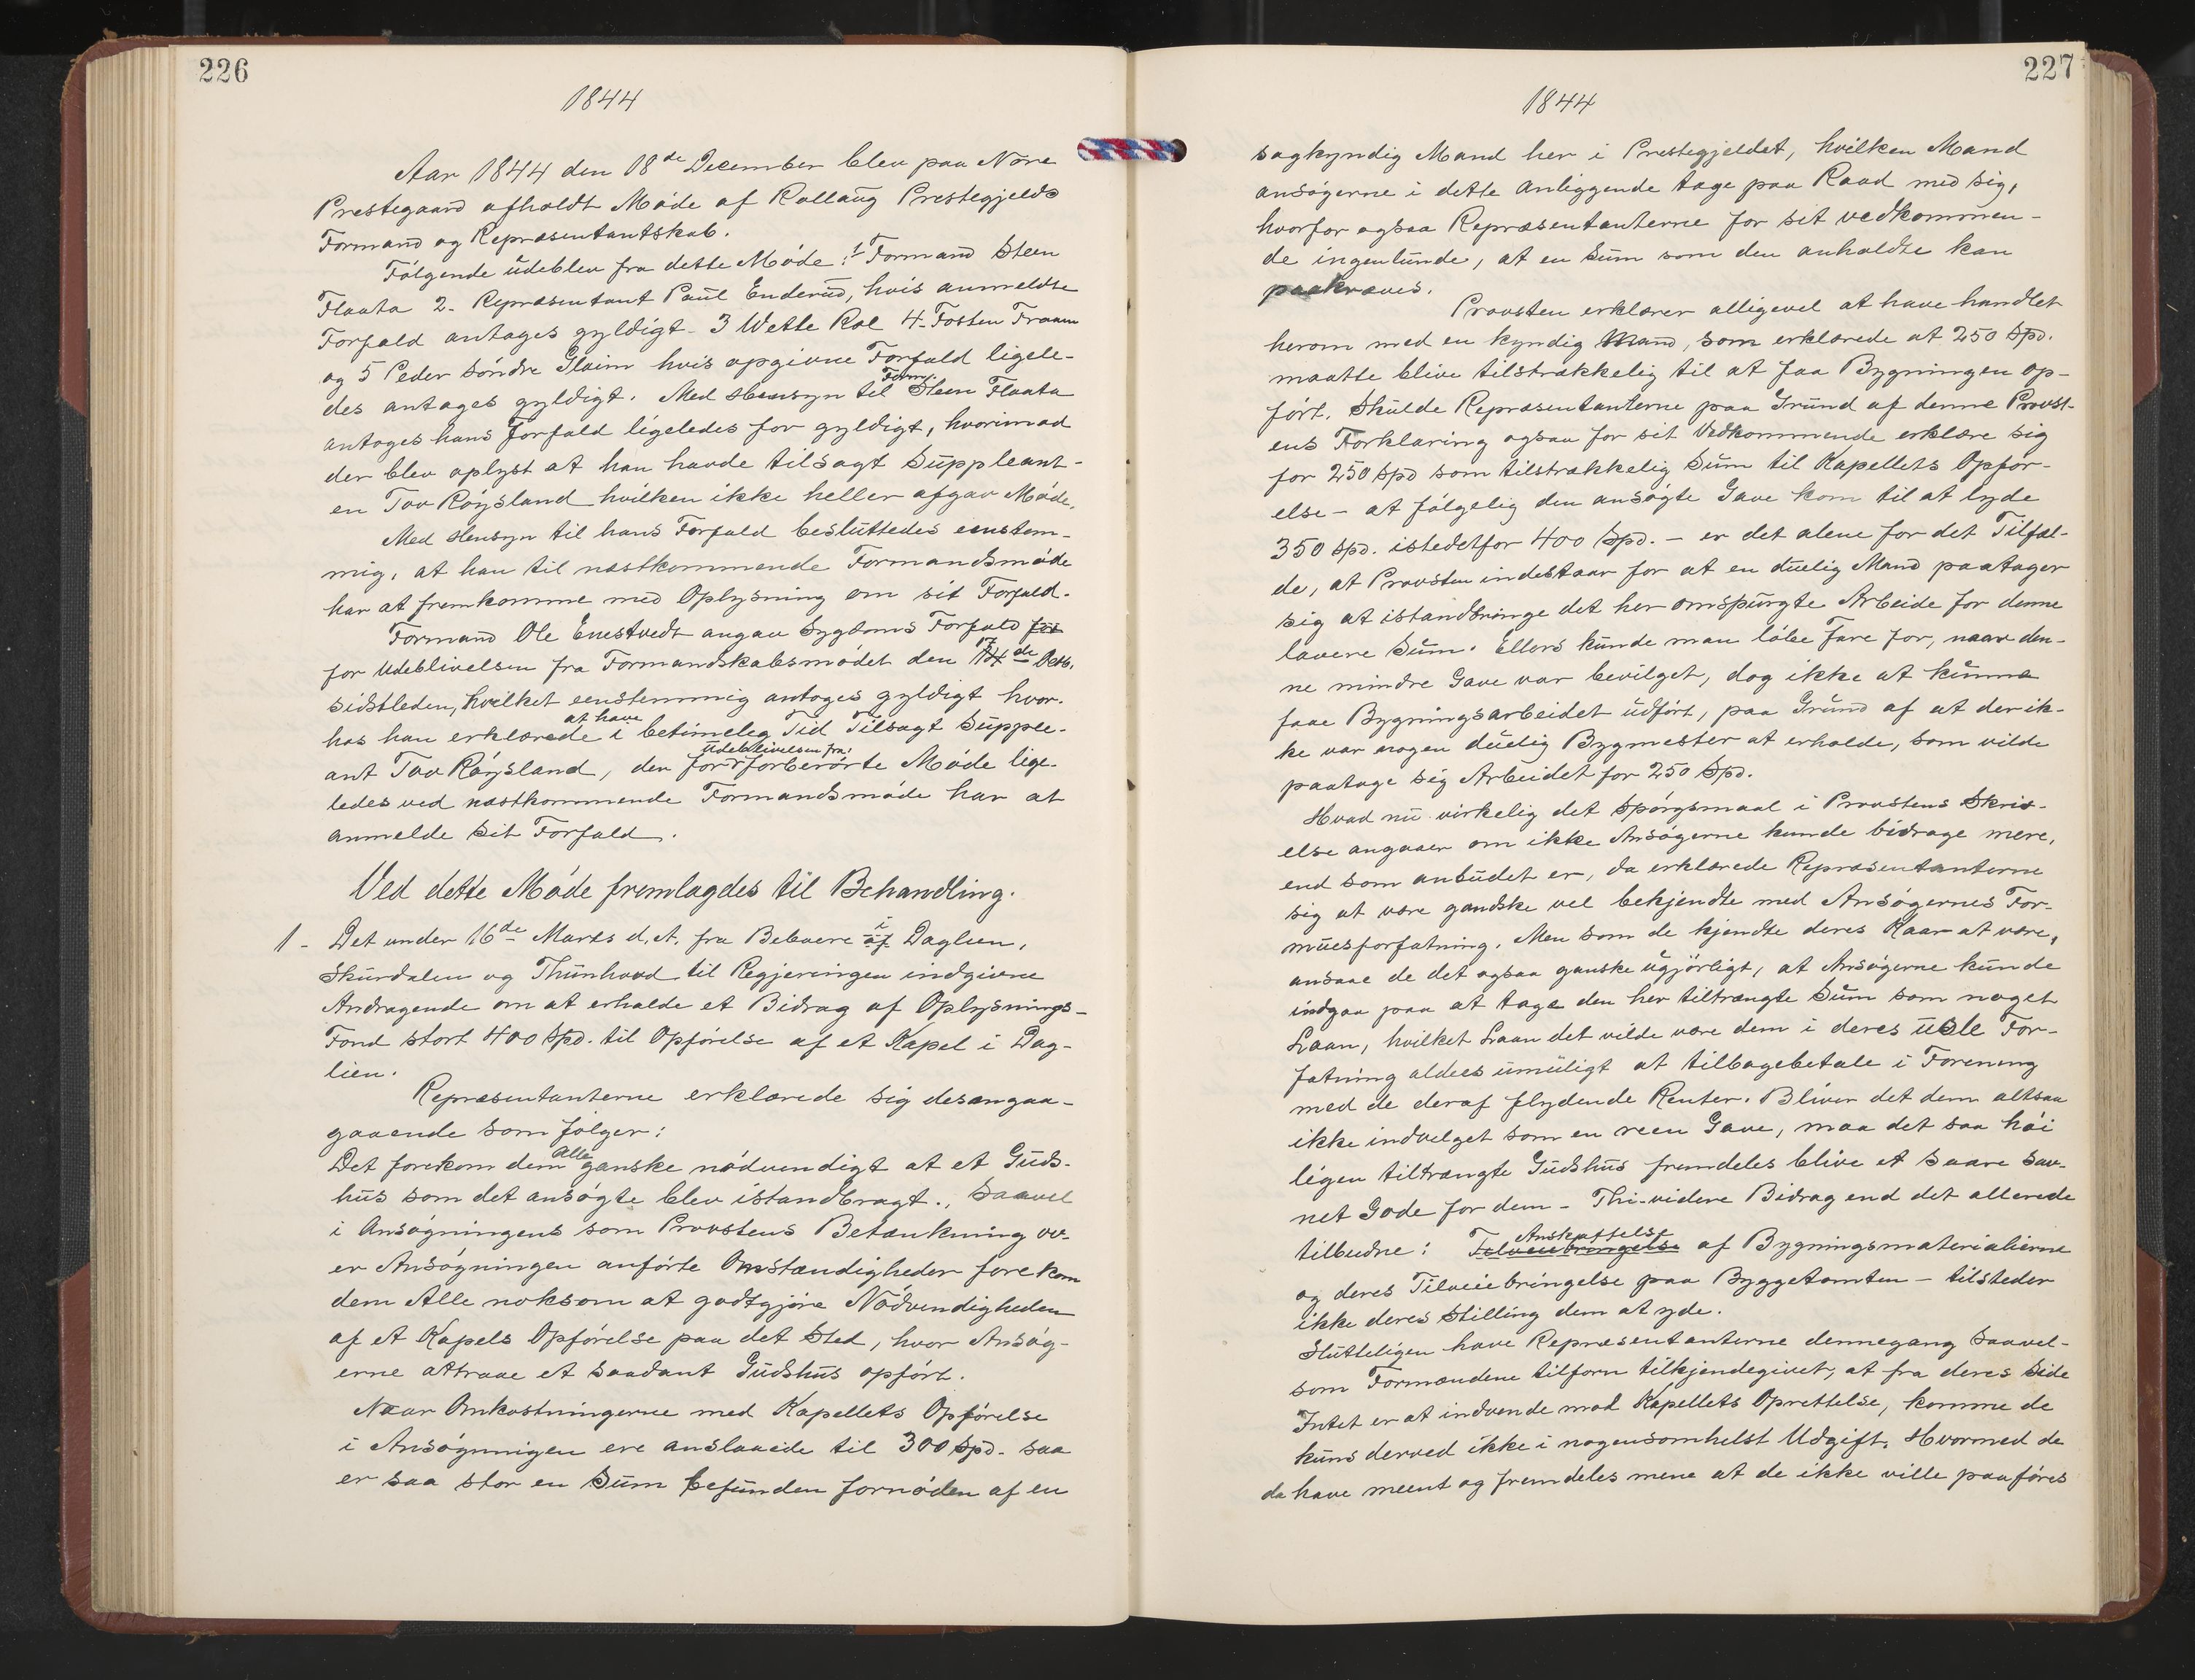 226
1844
Aar 1844 den 18de December blev paa Nore
Prestegaard afholdt Møde af Rollaug Prestegjelds
Formand og Repræsentantskab.
Følgende udeblev fra dette Møde: 1 Formand Steen
Flaata 2. Repræsentant Paul Enderud, hvis anmeldte
Forfald antages gyldigt. 3 Wetle Roe 4. Tosten Traaen
og 5 Peder Søndre Gloim hvis opgivne Forfald ligele-
des antages gyldigt. Med Hensyn til Form: Steen Flaata
antages hans Forfald ligeledes for gyldigt, hvorimod
der blev oplyst at han havde tilsagt Suppleant-
en Tov Røysland hvilken ikke heller afgav Møde.
Med Hensyn til hans Forfald besluttedes eenstem-
mig, at han til næstkommende Formandsmøde
har at fremkomme med Oplysning om sit Forfald.
Formand Ole Enestvedt angav Sygdoms Forfald for
for Udeblivelsen fra Formandskabsmødet den 17de Octb.
sidstleden, hvilket eenstemmig antoges gyldigt hvor-
hos han erklærede at have i betimeleg Tid Tilsagt Supple-
ant Tov Røysland, der for Udeblivelsen fra forberørte Møde lige-
ledes ved næstkommende Formandsmøde har at
anmelde sit Forfald.
Ved dette Møde fremlagdes til Behandling.
1- Det under 16de Marts d.A. fra Beboere af i Daglien,
Skurdalen og Thunhovd til Regjeringen indgivne
Andragende om at erholde et Bidrag af Oplysnings-
Fond stort 400 Spd. til Opførelse af et Kapel i Dag-
lien.
Repræsentanterne erklærede sig desangaa-
gaaende som følger:
Det forekom dem Alle ganske nødvendigt at et Guds-
hus som det ansøgte blev istandbragt., Saavel
i Ansøgningens som Provstens Betænkning ov-
er Ansøgningen anførte Omstændigheder forekom
dem Alle noksom at godtgjøre Nødvendigheden
af et Kapels Opførelse paa det Sted, hvor Ansøg-
erne attraae et saadant Gudshus opført.
Naar Omkostningerne med Kapellets Opførelse
i Ansøgningen ere anslaaede til 300 Spd. saa
er saa stor en Sum befunden fornøden af en
227
1844
sagkyndig Mand her i Prestegjeldet, hvilken Mand
ansøgerne i dette Anliggende tage paa Raad med sig,
hvorfor ogsaa Repræsentanterne for sit vedkommen-
de ingenlunde, at en Sum som den anholdte kan
paakræves.
Provsten erklærer alligevel at have handlet
herom med en kyndig Mand, som erklærede at 250 Spd.
maatte blive tilstrækkelig til at faa Bygningen op-
ført. Skulde Repræsentanterne paa Grund af denne Provst-
ens Forklaring ogsaa for sit Vedkommende erklære sig
for 250 Spd som tilstrækkelig Sum til Kapellets Opfør-
else - at følgelig den ansøgte Gave kom til at lyde
350 Spd. istedetfor 400 Spd. - er det alene for det Tilfæl-
de, at Provsten indestaar for at en duelig Mand paatager
sig at istandbringe det her omspurgte Arbeide for denne
lavere Sum. Ellers kunde man løbe Fare for, naar den-
ne mindre Gave var bevilget, dog ikke at kunne
faae Bygningsarbeidet udført, paa Grund af at der ik-
ke var nogen duelig Bygmester at erholde, som vilde
paatage sig Arbeidet for 250 Spd.
Hvad nu virkelig det Spørgsmaal i Provstens Skriv-
else angaaer om ikke Ansøgerne kunde bidrage mere,
end som anbudet er, da erklærede Repræsentanterne
sig at være gandske vel bekjendte med Ansøgernes For-
muesforfatning. Men som de kjendte deres Kaar at være,
ansaae de det ogsaa ganske ugjørligt, at Ansøgerne kunde
indgaa paa at tage den her tiltrængte Sum som noget
Laan, hvilket Laan det vilde være dem i deres usle For-
fatning aldees umuligt at tilbagebetale i Forening
med de deraf flydende Renter. Bliver det dem altsaa
ikke indvelget som en reen Gave, maa det saa høi
ligen tiltrængte Gudshus fremdeles blive et saare sav-
net Gode for dem - Thi videre Bidrag end det allerede
tilbudne: Tilveiebringelse Anskaffelse af Bygningsmaterialierne
og deres Tilveiebringelse paa Byggetomten - tilsteder
ikke deres Stilling dem at yde.
Slutteligen have Repræsentanterne dennegang saavel-
som Formændene tilforn tilkjendegivet, at fra deres Side
Intet er at indvende mod Kapellets Oprettelse, komme de
kuns derved ikke i nogensomhelst Udgift. Hvormed de
da have meent og fremdeles mene at de ikke ville paaføres